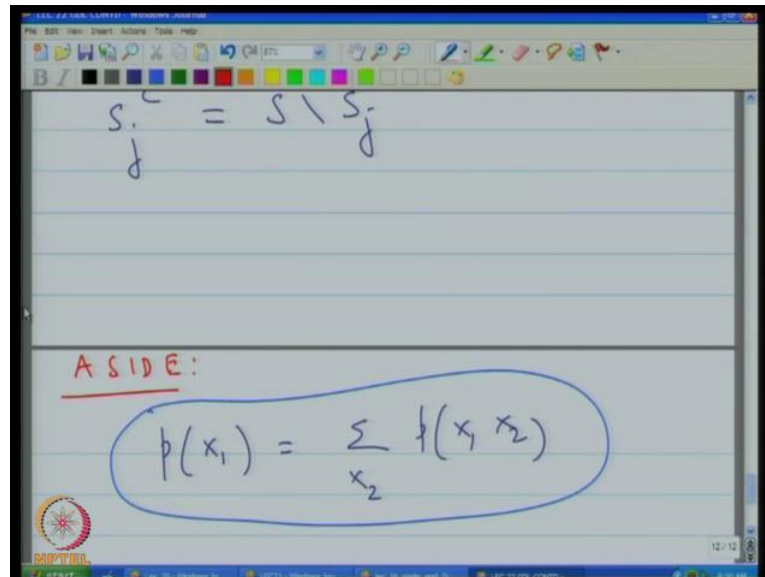 LEC 22 GDL CONTD - Windows Journal
File Edit View Insert Actions Tools Help
87%
B I
S_j^c = S \ S_j
ASIDE:
p(x₁) = Σ_{x₂} p(x₁ x₂)
12 / 12
NPTEL